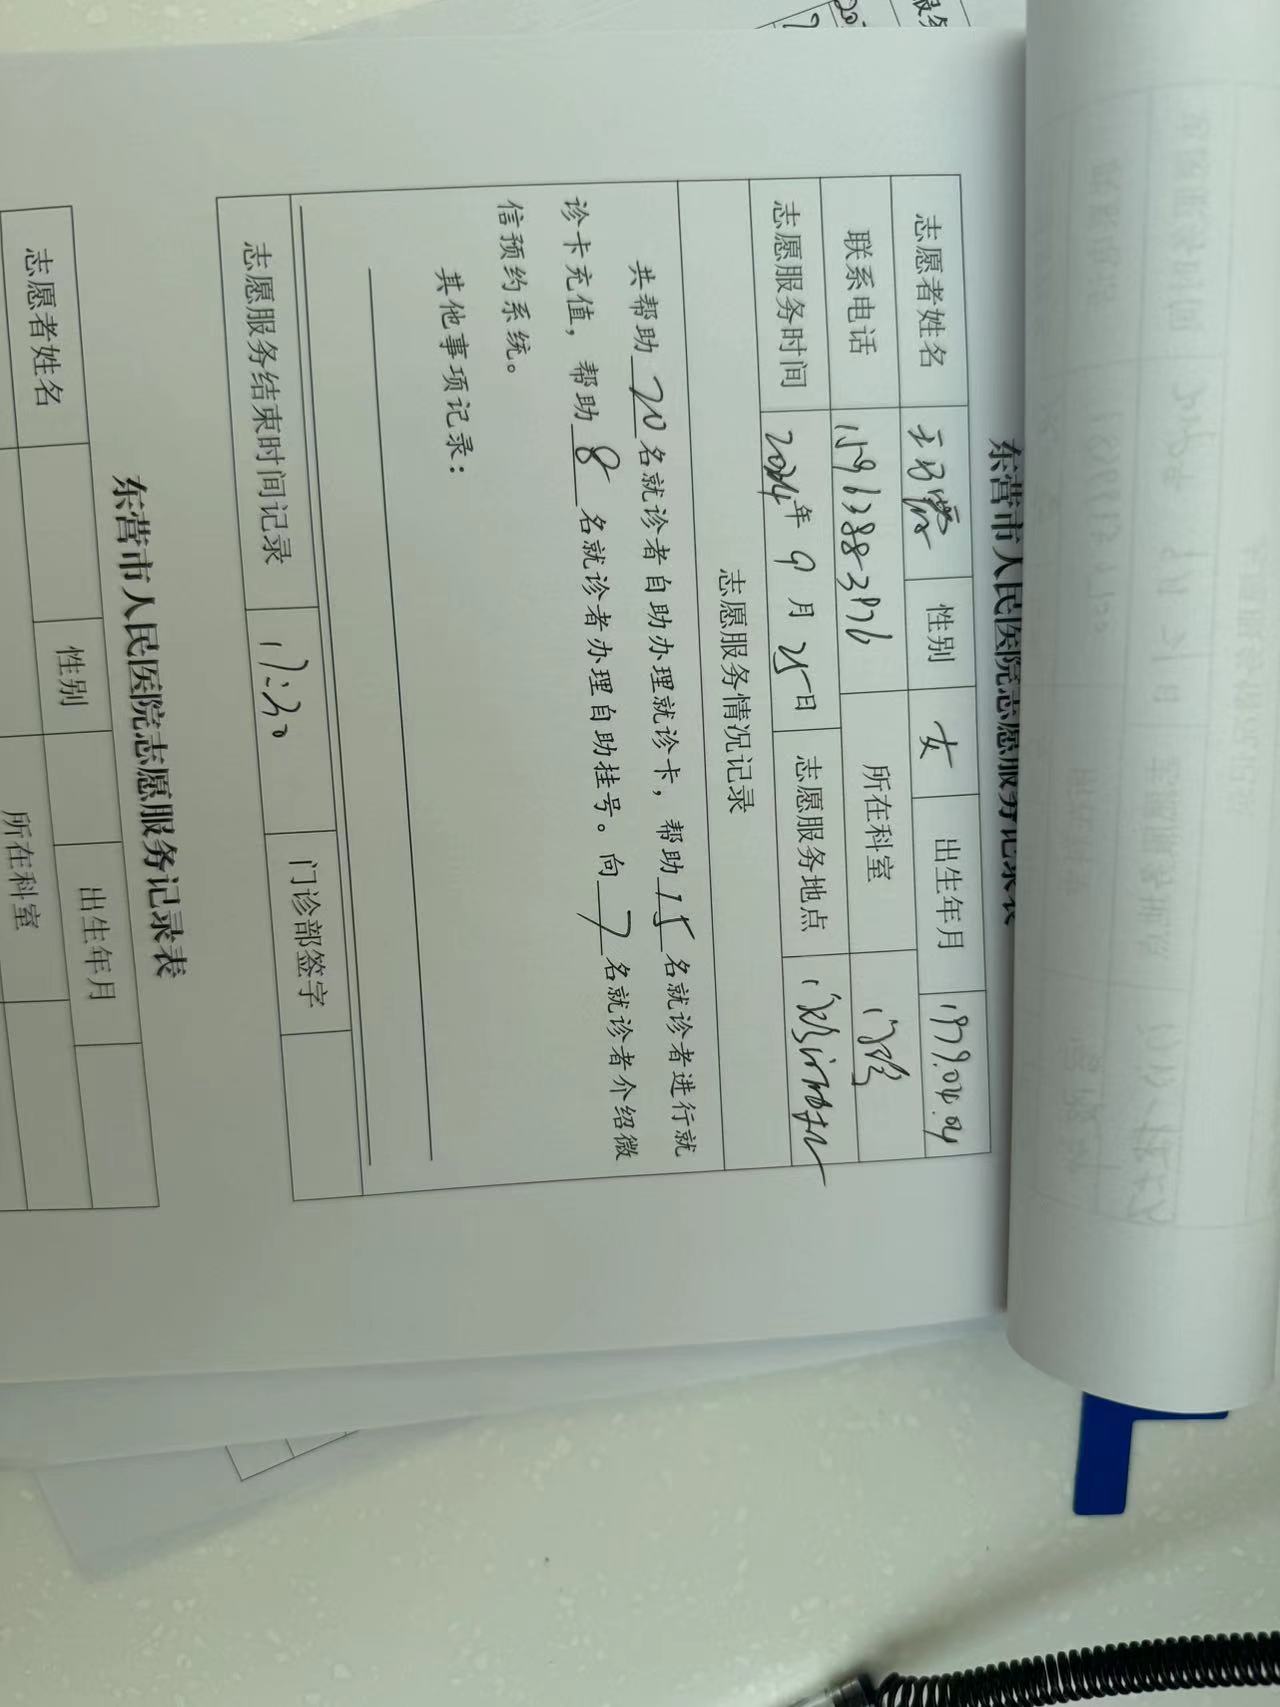 东营市人民医院志愿服务记录表
志愿者姓名 性别 女 出生年月 1979.04.04
联系电话 15963883976 所在科室 门诊
志愿服务时间 2024年9月25日 志愿服务地点
志愿服务情况记录
共帮助 20 名就诊者自助办理就诊卡，帮助 15 名就诊者进行就
诊卡充值，帮助 8 名就诊者办理自助挂号。向 7 名就诊者介绍微
信预约系统。
其他事项记录：
志愿服务结束时间记录 17:30 门诊部签字
东营市人民医院志愿服务记录表
志愿者姓名 性别 出生年月
所在科室